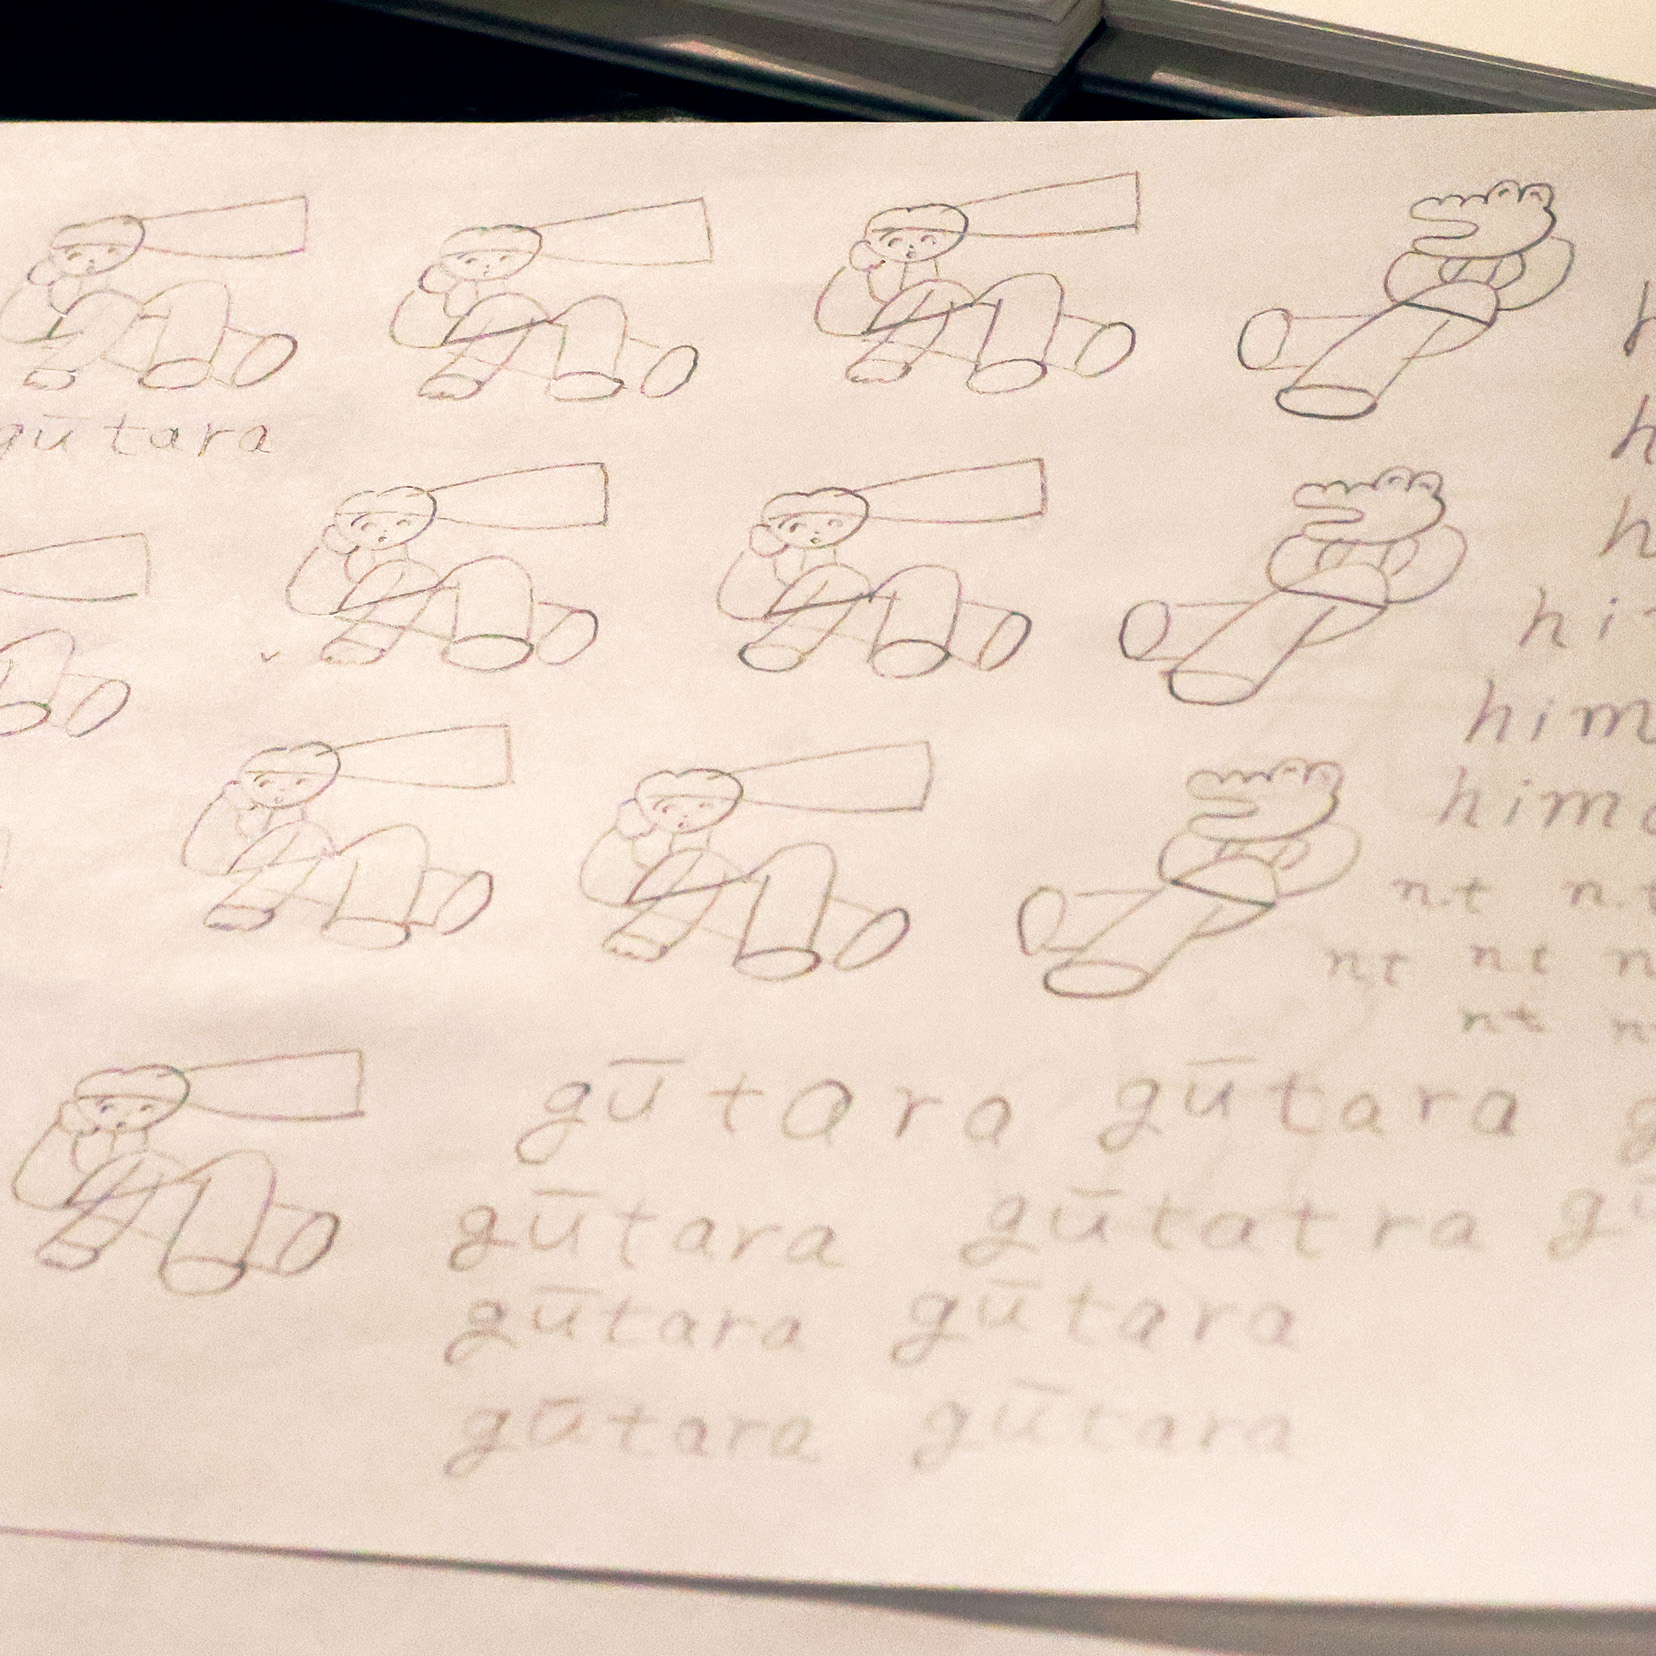 gūtara
hi
him
n.t
nt nt
nt
gū tara gūtara
gūtara gūtatra gū
gūtara gūtara
gūtara gūtara